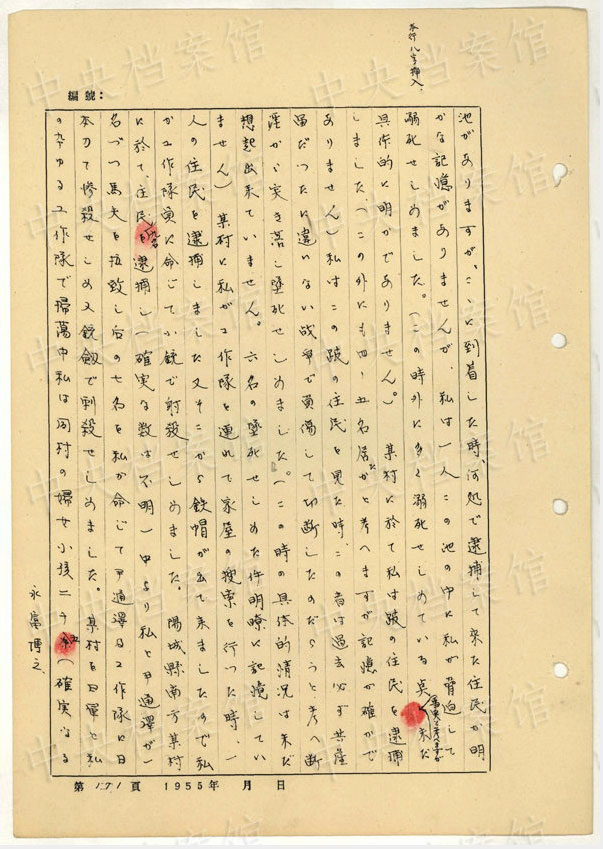 本行八字挿入.
編號:
池がありますが、こゝに到着した時、何処で逮捕して来た住民か明
かな記憶がありませんが、私は一人この池の中に私が脅迫して
溺死せしめました。(この時外に多く溺死せしめている 事実と考へますが 未だ
具体的に明かでありません。) 某村に於て私は跛の住民を逮捕
しました(この外にも四、五名居たかと考へますが記憶が確かで
ありません)私はこの跛の住民を見た時、この者は過去必ず共産
軍だつたに違いない戦争で負傷して切断したのだらうと考へ断
崖から突き落し墜死せしめました。(この時の具体的情況は未だ
想起出来ていません。六名の墜死せしめた件明瞭に記憶してい
ません) 某村に私が工作隊を連れて家屋の捜索を行つた時、一
人の住民を逮捕しました又そこから鉄帽が出て来ましたので私
が工作隊員に命じて小銃で射殺せしめました。陽城縣南方某村
に於て、住民九名を逮捕し(確実な数は不明)中より私と甲通澤が一
名づつ馬夫を拉致し后の七名を私が命じて甲通澤る工作隊に日
本刀で惨殺せしめ又銃劔で刺殺せしめました。某村を日軍と私
のひきゆる工作隊で掃蕩中私は同村の婦女小孩二(確実なる
永富博之.
第171頁 1955年 月 日
中央档案馆